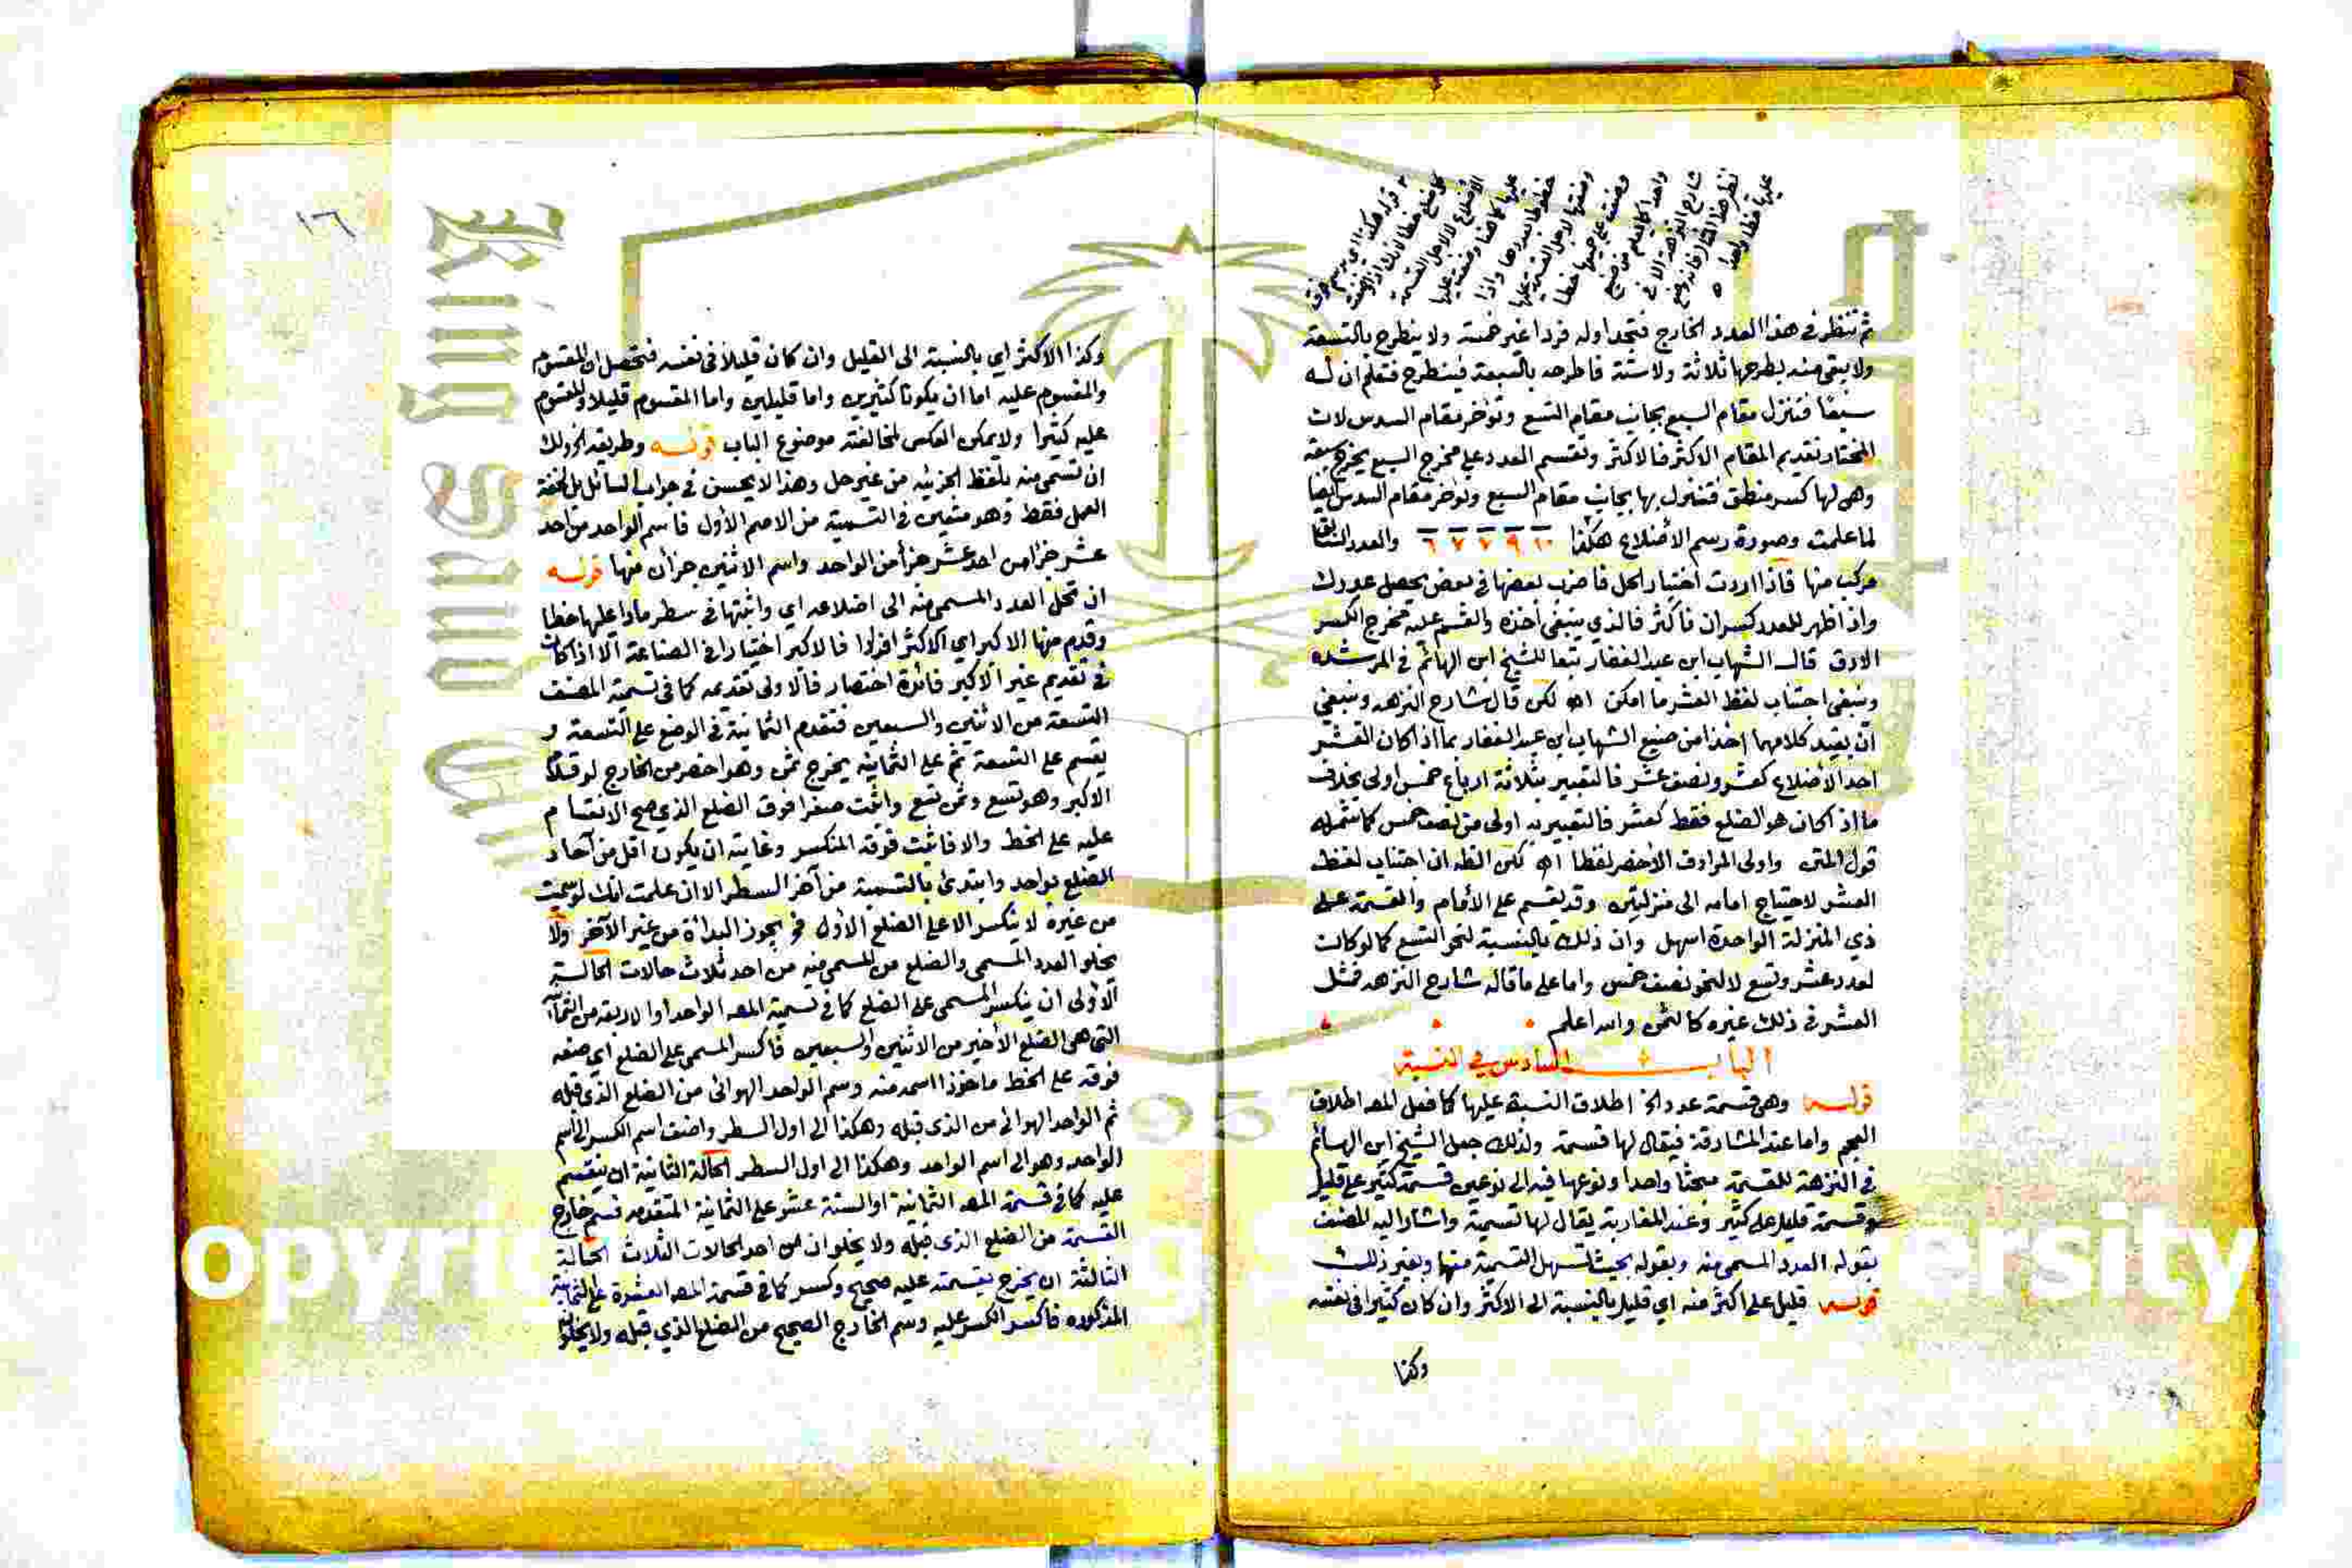 ثم تنظر في هذا العدد الخارج فتجد اوله فردا غير خمسة ولا ينطرح بالتسعة
ولا يبقى منه بطرحها ثلاثة ولا ستة فاطرحه بالسبعة فينطرح فتعلم ان له
سبعا فتنزل مقام السبع بجانب مقام التسع وتؤخر مقام السدس لان
المختار تقديم المقام الاكثر فالاكثر وتقسم العدد على مخرج السبع يخرج سبعة
وهي لها كسر منطق فتنزل بها بجانب مقام السبع وتؤخر مقام السدس ايضا
لما علمت وصورة رسم الأضلاع هكذا ١٠ ٩ ٧ ٧ ٦ والعدد
مركب منها فاذا اردت اختبار الحل فاضرب بعضها في بعض يحصل عددك
واذا ظهر للعدد كسران فأكثر فالذي ينبغي أخذه والقسم عليه مخرج الكسر
الادق قال الشهاب ابن عبد الغفار تبعا للشيخ ابن الهائم في المرشدة
وينبغي اجتناب لفظ العشر ما امكن اه لكن قال شارح النزهه وينبغي
أن يقيد كلامهما اخذا من صنيع الشهاب ابن عبد الغفار بما اذا كان العشر
احد الأضلاع كعشر ونصف عشر فالتعبير بثلاثة ارباع خمس اولى بخلاف
ما اذا كان هو الضلع فقط كعشر فالتعبير به اولى من نصف خمس كما شمله
قول المتن واولى المرادف الأخصر لفظا اه لكن الظه ان اجتناب لفظ
العشر لاحتياج امامه الى منزلتين وقد يقسم على الأمام والقسمة على
ذي المنزلة الواحدة اسهل وان ذلك بالنسبة لنحو التسع كما لو كان
لعدد عشر وتسع لا لنحو نصف خمس واما على ما قاله شارح النزهه فمثل
العشر في ذلك غيره كالثمن والله اعلم
الباب السادس في النسبة
قوله وهي قسمة عدد الخ اطلاق النسبة عليها كما فعل المص اطلاق
العجم واما عند المشارقة فيقال لها قسمة ولذلك جعل الشيخ ابن الهائم
في النزهة للقسمة مبحثا واحدا ونوعها فيه الى نوعين قسمة كثير على قليل
وقسمة قليل على كثير وعند المغاربة يقال لها تسمية واشار اليه المصنف
بقوله العدد المسمى منه وبقوله بحيث تسهل التسمية منها وبغير ذلك
قوله قليل على اكثر منه اي قليل بالنسبة الى الاكثر وان كان كثيرا في نفسه
وكذا
١٦
وكذا الاكثر اي بالنسبة الى القليل وان كان قليلا في نفسه فتحصل ان المقسوم
والمقسوم عليه اما ان يكونا كثيرين واما قليلين واما المقسوم قليلا والمقسوم
عليه كثيرا ولا يمكن العكس لمخالفته موضوع الباب قوله وطريقه الخ ولك
ان تسمي منه بلفظ الجزئيه من غير حل وهذا لا يحسن في جواب السائل بل لخفة
العمل فقط وهو متعين في التسمية من الاصم الأول فاسم الواحد من احد
عشر جزأ من احد عشر جزأ من الواحد واسم الاثنين جزآن منها قوله
ان تحل العدد المسمى منه الى اضلاعه اي واثبتها في سطر مادا عليها خطا
وقدم منها الاكبر اي الاكثر افرادا فالاكبر اختيارا في الصناعة الا اذا كان
في تقديم غير الأكبر فائدة اختصار فالاولى تقديمه كما في تسمية المصنف
التسعة من الاثنين والسبعين فتقدم الثمانية في الوضع على التسعة و
يقسم على التسعة ثم على الثمانية يخرج ثمن وهو اخصر من الخارج لو قدم
الاكبر وهو تسع وثمن تسع واثبت صفرا فوق الضلع الذي صح الانقسام
عليه على الخط والا فاثبت فوقه المنكسر وغايته ان يكون اقل من آحاد
الضلع بواحد وابتدئ بالتسمية من آخر السطر الا ان علمت انك لو سميت
من غيره لا ينكسر الا على الضلع الأول فح يجوز البدأة من غير الآخر ولا
يخلو العدد المسمى والضلع من المسمى منه من احد ثلاث حالات الحالة
الأولى ان ينكسر المسمى على الضلع كما في تسمية المصه الواحد او الاربعة من الثمانية
التي هي الضلع الأخير من الاثنين والسبعين فاكسر المسمى على الضلع اي ضعه
فوقه على الخط مأخوذا اسمه منه وسم الواحد الهوائى من الضلع الذي قبله
ثم الواحد الهوائى من الذي قبله وهكذا الى اول السطر واضف اسم الكسر الى اسم
الواحد وهو الى اسم الواحد وهكذا الى اول السطر الحالة الثانية ان ينقسم
عليه كما في قسمة المصه الثمانية او الستة عشر على الثمانية المتقدمه فسم خارج
القسمة من الضلع الذي قبله ولا يخلوان من احد الحالات الثلاث الحالة
الثالثة ان يخرج بقسمته عليه صحيح وكسر كما في قسمة المصه العشرة على الثمانية
المذكوره فاكسر الكسر عليه وسم الخارج الصحيح من الضلع الذي قبله ولا يخلوان